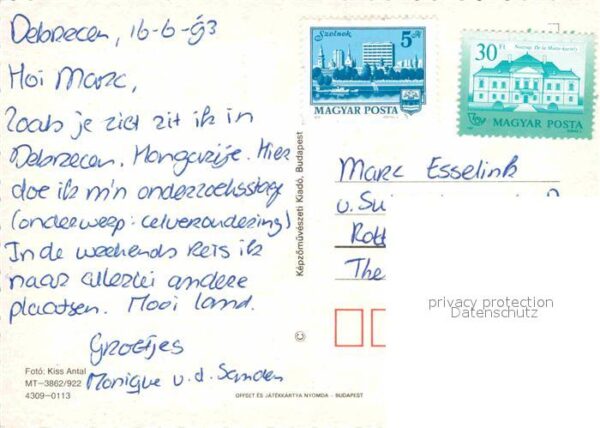 Debrecen, 16-6-93
Hoi Marc,
Zoals je ziet zit ik in
Debrecen, Hongarije. Hier
doe ik m'n onderzoeksstage
(onderwerp: celveroudering)
In de weekends reis ik
naar allerlei andere
plaatsen. Mooi land.
Groetjes
Monique v.d. Sanden
Fotó: Kiss Antal
MT-3862/922
4309-0113
© Képzőművészeti Kiadó, Budapest
OFFSET ÉS JÁTÉKKÁRTYA NYOMDA - BUDAPEST
Szolnok
5 Ft
MAGYAR POSTA
30 Ft
MAGYAR POSTA
Marc Esselink
v.
Rott
The
privacy protection
Datenschutz